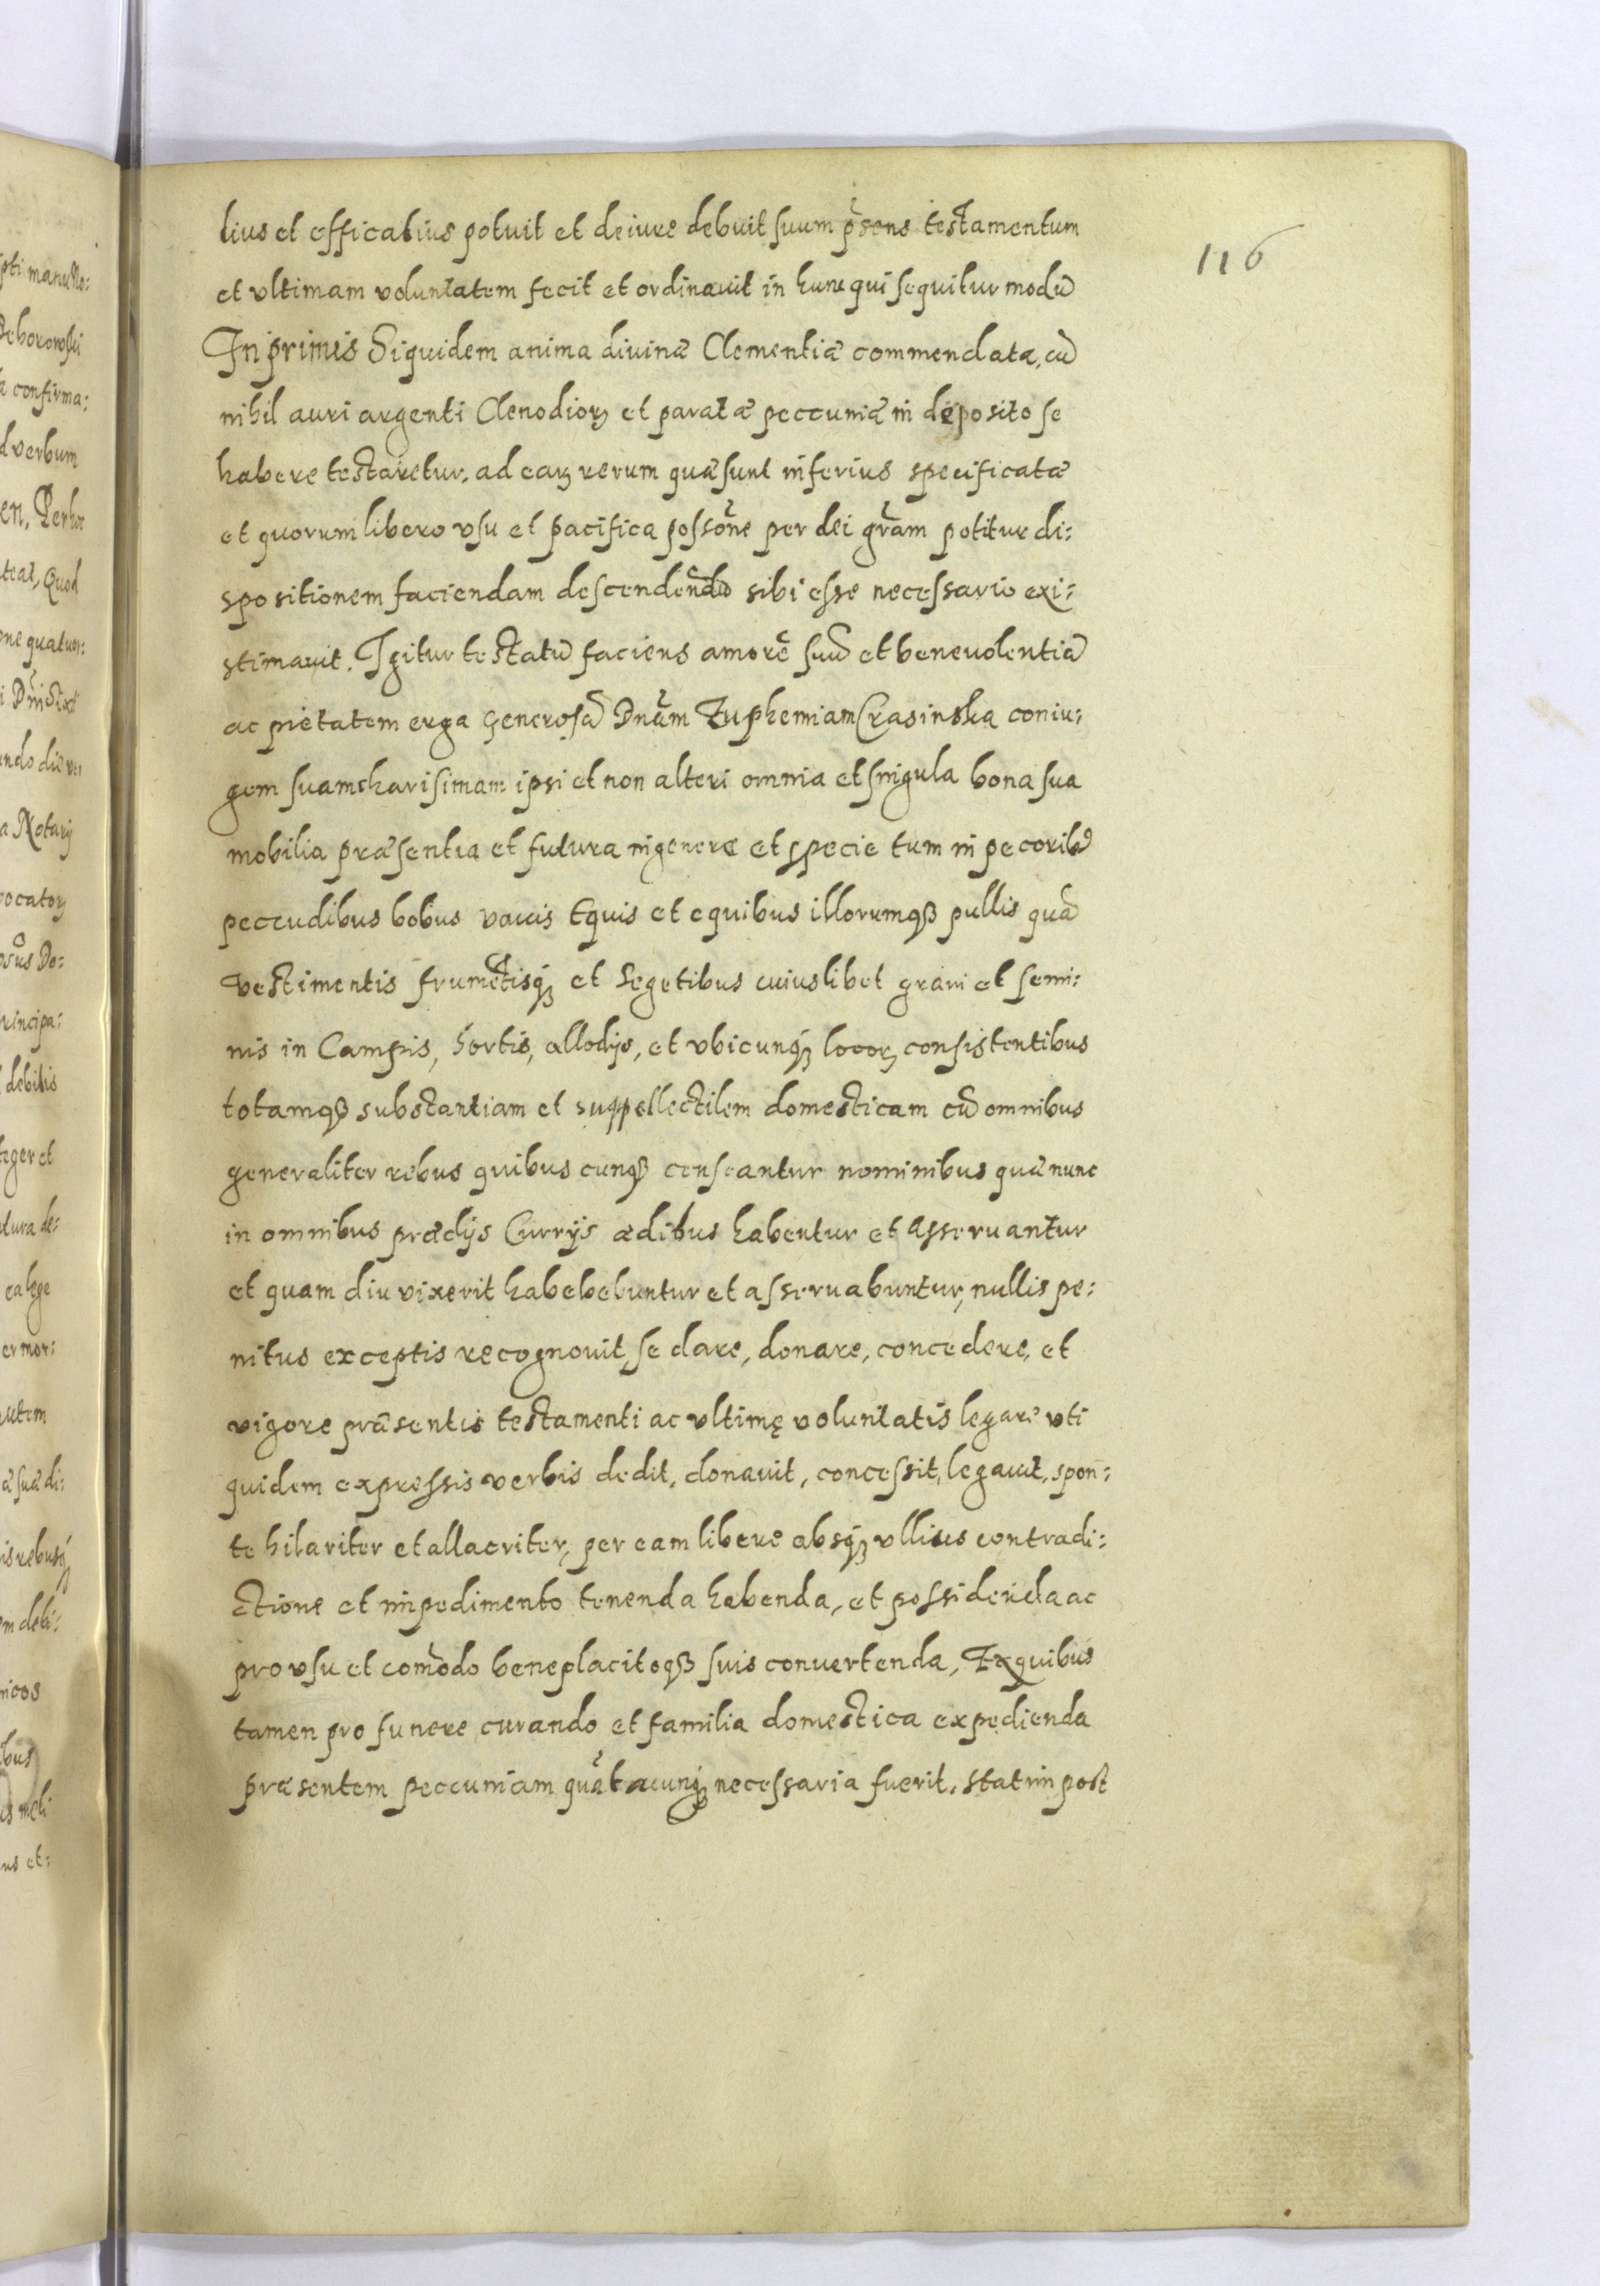 116
lius et efficatius potuit et de iure debuit suum p̃sens testamentum
et vltimam voluntatem fecit et ordinauit in hunc qui sequitur modũ
In primis Siquidem anima diuinæ Clementiæ commendata, cũ
nihil auri argenti Clenodioꝝ et paratæ peccuniæ in deposito se
habere testaretur, ad eaꝝ rerum quæ sunt inferius specificatæ
et quorum libero vsu et pacifica possoñe per dei gr̃am potitur di:
spositionem faciendam descendendũ sibi esse necessario exi:
stimauit. Igitur testatũ faciens amorẽ suũ et beneuolentiã
ac pietatem erga generosã Dnãm Euphemiam Crasinska coniu:
gem suam charisimam ipsi et non alteri omnia et singula bona sua
mobilia præsentia et futura in genere et specie tum in pecorib9
peccudibus bobus vaccis Equis et equibus illorumqꝫ pullis quã
vestimentis frumẽtisqꝫ et Segetibus cuiuslibet grani et semi:
nis in Campis, hortis, allodijs, et vbicunqꝫ locoꝝ consistentibus
totamqꝫ substantiam et suppellectilem domesticam cũ omnibus
generaliter rebus quibus cunqꝫ censeantur nominibus quæ nunc
in omnibus prædijs Currijs ædibus habentur et asseruantur
et quam diu vixerit habebebuntur et asseruabuntur, nullis pe:
nitus exceptis recognouit, se dare, donare, concedere, et
vigore præsentis testamenti ac vltimę voluntatis legare vti
quidem expressis verbis dedit, donauit, concessit, legauit, spon:
te hilariter et allacriter, per eam libere absqꝫ vllius contradi:
ctione et impedimento tenenda habenda, et possidenda ac
pro vsu et com̃odo beneplacitoqꝫ suis conuertenda, Ex quibus
tamen pro funere curando et familia domestica expedienda
præsentem peccuniam quãtacunqꝫ necessaria fuerit, statim post